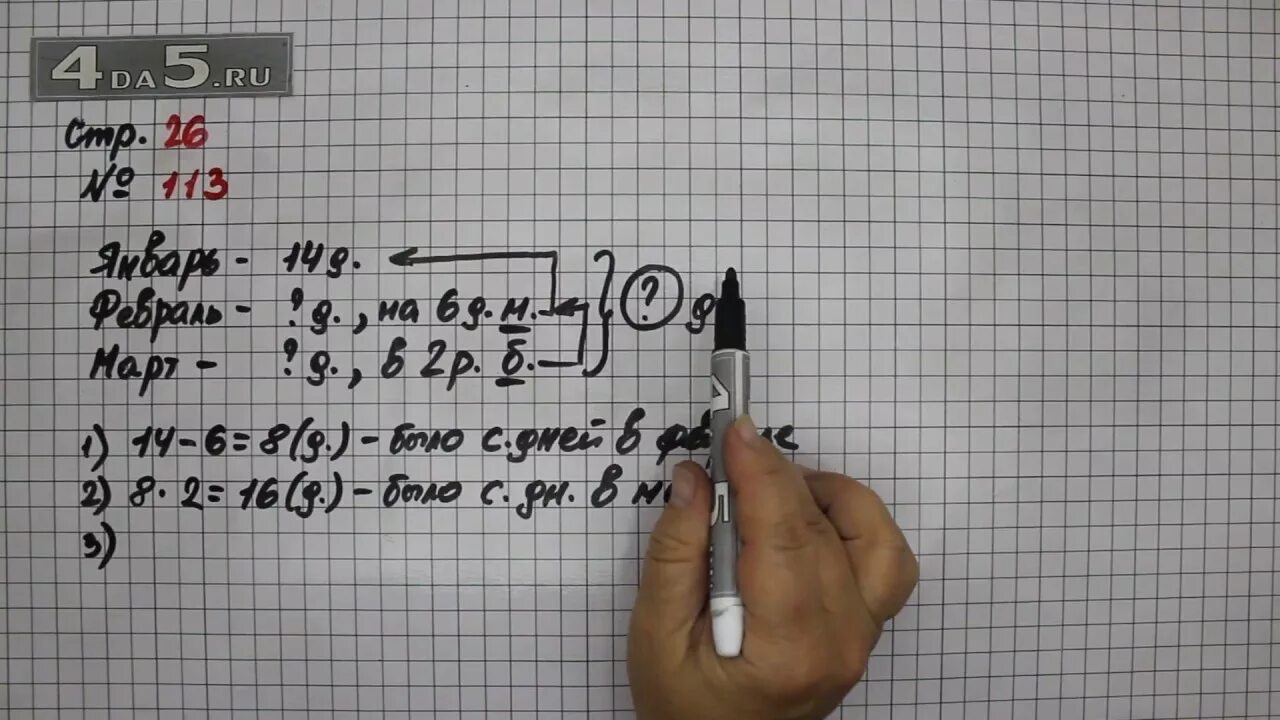 4DA5.RU
Стр. 26
№ 113
Январь - 14 д.
Февраль - ? д., на 6 д. м.
Март - ? д., в 2 р. б.
? д
1) 14 - 6 = 8 (д.) - было с. дней в
2) 8 · 2 = 16 (д.) - было с. дн. в
3)